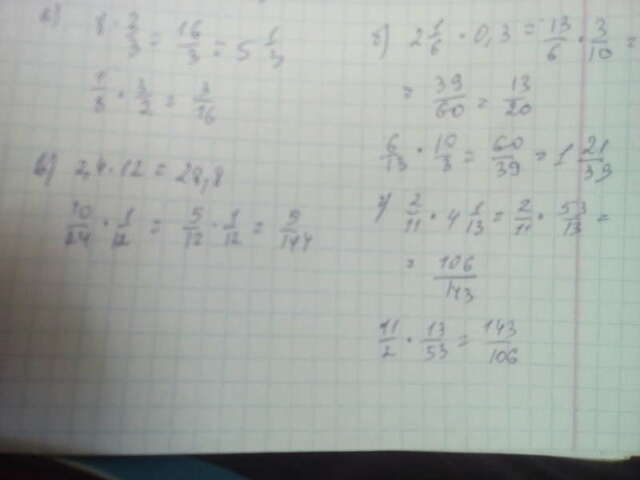 а) 8 · 2/3 = 16/3 = 5 1/3
1/8 · 3/2 = 3/16
в) 2,4 · 12 = 28,8
10/24 · 1/12 = 5/12 · 1/12 = 5/144
б) 2 1/6 · 0,3 = 13/6 · 3/10 =
= 39/60 = 13/20
6/13 · 10/3 = 60/39 = 1 21/39
г) 2/11 · 4 1/13 = 2/11 · 53/13 =
= 106/143
11/2 · 13/53 = 143/106